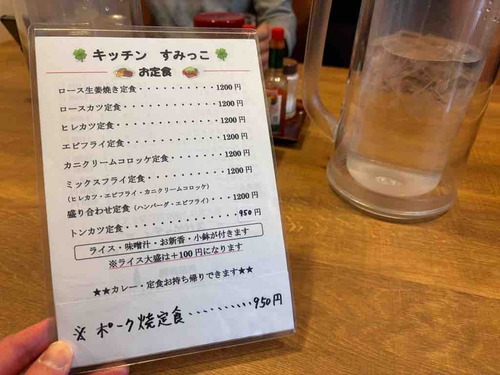 キッチン すみっこ
お定食
ロース生姜焼き定食・・・・・・・・・・1200円
ロースカツ定食・・・・・・・・・・・・1200円
ヒレカツ定食・・・・・・・・・・・・・1200円
エビフライ定食・・・・・・・・・・・・1200円
カニクリームコロッケ定食・・・・・・・1200円
ミックスフライ定食・・・・・・・・・・1200円
(ヒレカツ・エビフライ・カニクリームコロッケ)
盛り合わせ定食(ハンバーグ・エビフライ)・・・1200円
トンカツ定食・・・・・・・・・・・・・950円
ライス・味噌汁・お新香・小鉢が付きます
※ライス大盛は+100円になります
★★カレー・定食お持ち帰りできます★★
※ポーク焼定食...........950円